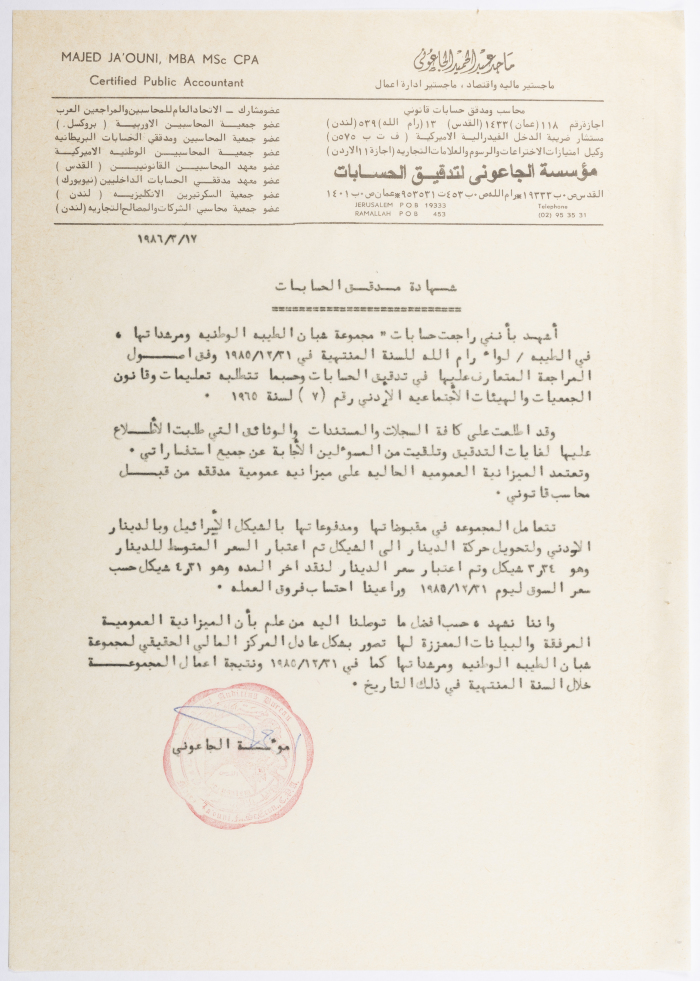 MAJED JA'OUNI, MBA MSc CPA
Certified Public Accountant
ماجد عبد الحميد الجاعوني
ماجستير ماليه واقتصاد ، ماجستير ادارة اعمال
محاسب ومدقق حسابات قانوني
اجازة رقم ١١٨ (عمان) ١٤٣٣ (القدس) ١٣ (رام الله) ٥٣٩ (لندن)
مستشار ضريبة الدخل الفيدرالية الاميركية ( ف ت ب ٥٧٥)
وكيل امتيازات الاختراعات والرسوم والعلامات التجاريه (اجازة ١١ الاردن)
مؤسسة الجاعوني لتدقيق الحسابات
القدس ص٠ب ١٩٣٣٣*رام الله ص٠ب ٤٥٣ ت ٩٥٣٥٣١*عمان ص٠ب ١٤٠١
JERUSALEM P O B 19333 Telephone
RAMALLAH P O B 453 (02) 95 35 31
عضو مشارك – الاتحاد العام للمحاسبين والمراجعين العرب
عضو جمعية المحاسبين الاوربية ( بروكسل )
عضو جمعية المحاسبين ومدققي الحسابات البريطانيه
عضو جمعية المحاسبين الوطنيه الاميركية
عضو معهد المحاسبين القانونيين ( القدس )
عضو معهد مدققي الحسابات الداخليين (نيويورك)
عضو جمعية السكرتيرين الانكليزيه ( لندن )
عضو جمعية محاسبي الشركات والمصالح التجاريه (لندن)
١٩٨٦/٣/١٧
شهادة مدقق الحسابات
أشهد بأنني راجعت حسابات " مجموعة شبان الطيبه الوطنيه ومرشداتها ،
في الطيبه / لواء رام الله للسنة المنتهية في ١٩٨٥/١٢/٣١ وفق اصول
المراجعة المتعارف عليها في تدقيق الحسابات وحسبما تتطلبه تعليمات وقانون
الجمعيات والهيئات الأجتماعيه الأردني رقم (٧) لسنة ١٩٦٥ ٠
وقد اطلعت على كافة السجلات والمستندات والوثائق التي طلبت الأطلاع
عليها لغايات التدقيق وتلقيت من المسؤلين الأجابة عن جميع استفساراتي ٠
وتعتمد الميزانية العموميه الحاليه على ميزانيه عمومية مدققه من قبل
محاسب قانوني ٠
تتعامل المجموعه في مقبوضاتها ومدفوعاتها بالشيكل الأسرائيل وبالدينار
الاردني ولتحويل حركة الدينار الى الشيكل تم اعتبار السعر المتوسط للدينار
وهو ٣ر٣٤ شيكل وتم اعتبار سعر الدينار لنقد اخر المده وهو ٤ر٣١ شيكل حسب
سعر السوق ليوم ١٩٨٥/١٢/٣١ وراعينا احتساب فروق العمله ٠
واننا نشهد ، حسب افضل ما توصلنا اليه من علم بأن الميزانية العمومية
المرفقة والبيانات المعززة لها تصور بشكل عادل المركز المالي الحقيقي لمجموعة
شبان الطيبه الوطنيه ومرشداتها كما في ١٩٨٥/١٢/٣١ ونتيجة اعمال المجموعة
خلال السنة المنتهية في ذلك التاريخ ٠
مؤسسة الجاعوني